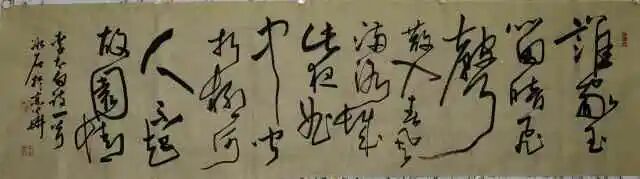 誰家玉
笛暗飛
聲
散入春風
滿洛城
此夜曲
中聞
折柳何
人不起
故園情
李太白詩一首